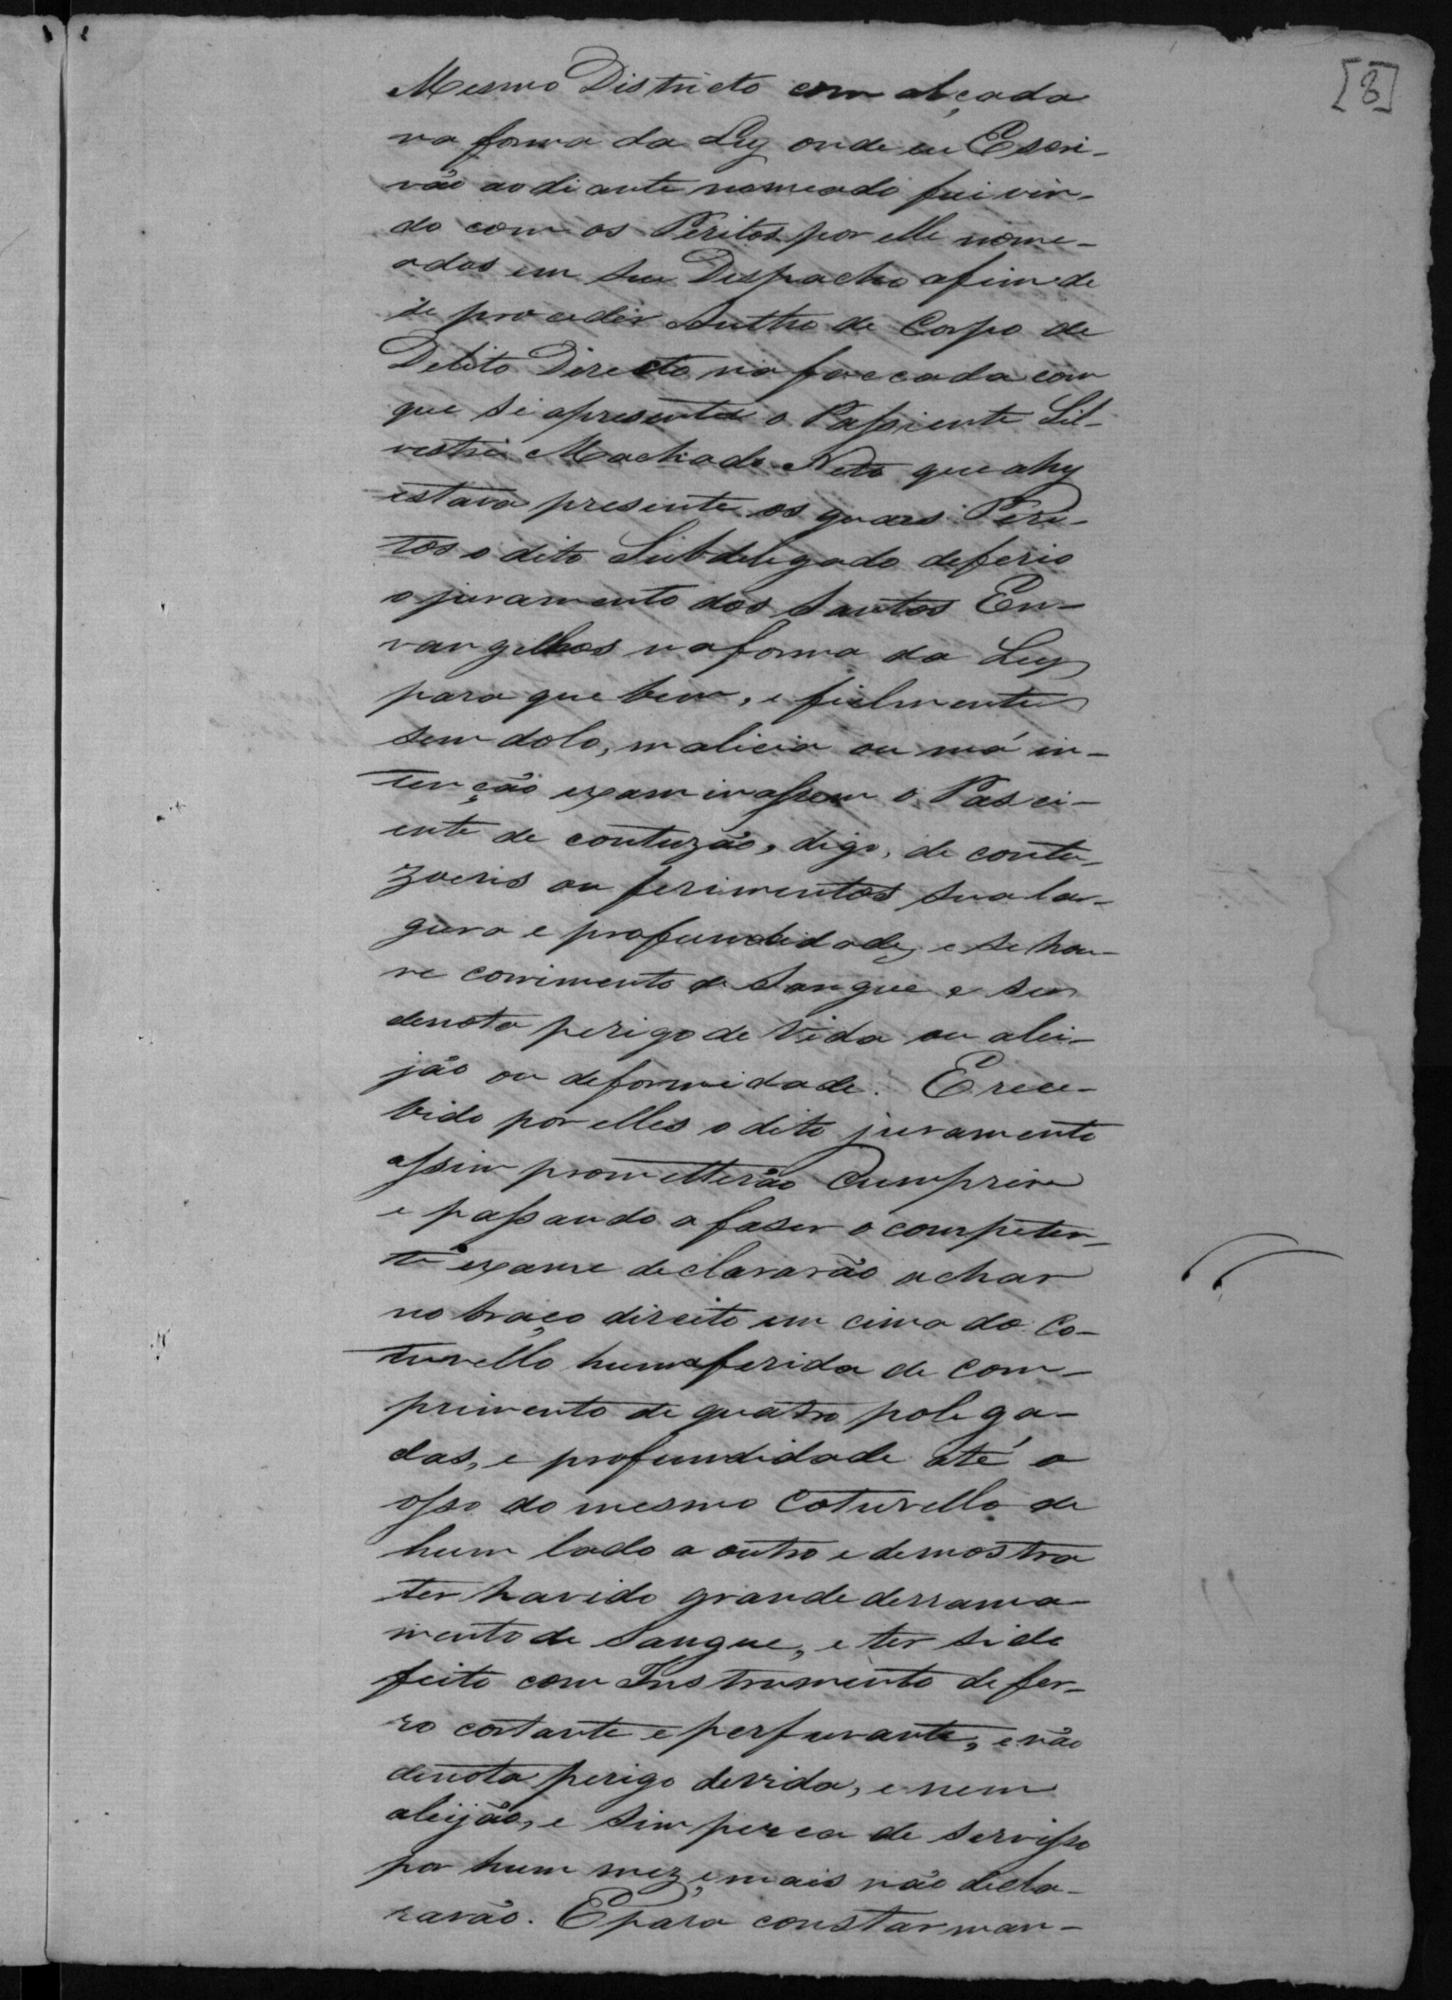 [8]
Mesmo Districto com alçada
na forma da Ley onde eu Escri-
vão aodiante nomeado fui vin-
do com os Peritos por elle nome-
ados em seu Despacho afim de
se proceder Autho de Corpo de
Delito Directo na faccada com
que se apresenta o Passiente Sil-
vestre Machado Neto que ahy
estava presente os quaes Peri-
tos o dito Subdelegado deferio
o juramento dos Santos En-
vangelhos na forma da Ley
para que bem, e fielmente
sem dolo, malicia ou má in-
tenção examinassem o Pasci-
ente de contuzão, digo, de contu-
zoens ou ferimentos sua lar-
gura e profundidade, e se hou-
ve corrimento de Sangue e se
denota perigo de Vida ou alei-
jão ou deformidade. E rece-
bido por elles o dito juramento
assim prometterão Cumprir
e passando a faser o competen-
te exame declararão achar
no braço direito em cima do Co-
turello huma ferida de com-
primento de quatro polega-
das, e profundidade até o
osso do mesmo Coturello de
hum lado a outro e demostra
ter havido grande derrama-
mento de Sangue, e ter sido
feito com Instrumento de fer-
ro cortante e perfurante, e não
denota perigo de vida, e nem
aleijão, e sim perca de servisso
por hum mez, e mais não decla-
rarão. E para constar man-